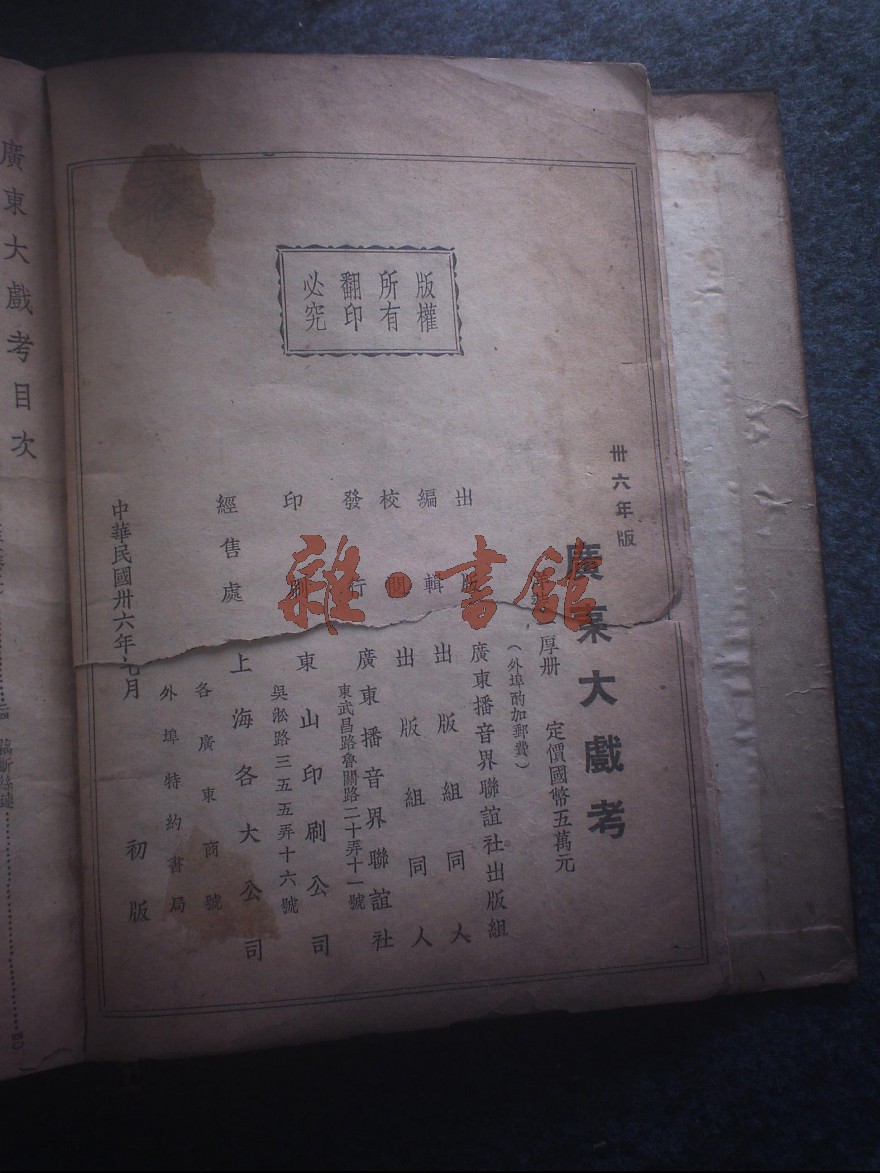 版權
所有
翻印
必究
卅六年版
廣東大戲考
厚册 定價國幣五萬元
（外埠酌加郵費）
出版 廣東播音界聯誼社出版組
編輯 出版組同人
校 出版組同人
發行 廣東播音界聯誼社
東武昌路魯關路二十弄十一號
印刷 東山印刷公司
吳淞路三五五弄十六號
經售處 上海各大公司
各廣東商號
外埠特約書局
中華民國卅六年七月 初版
廣東大戲考目次
雜·書館